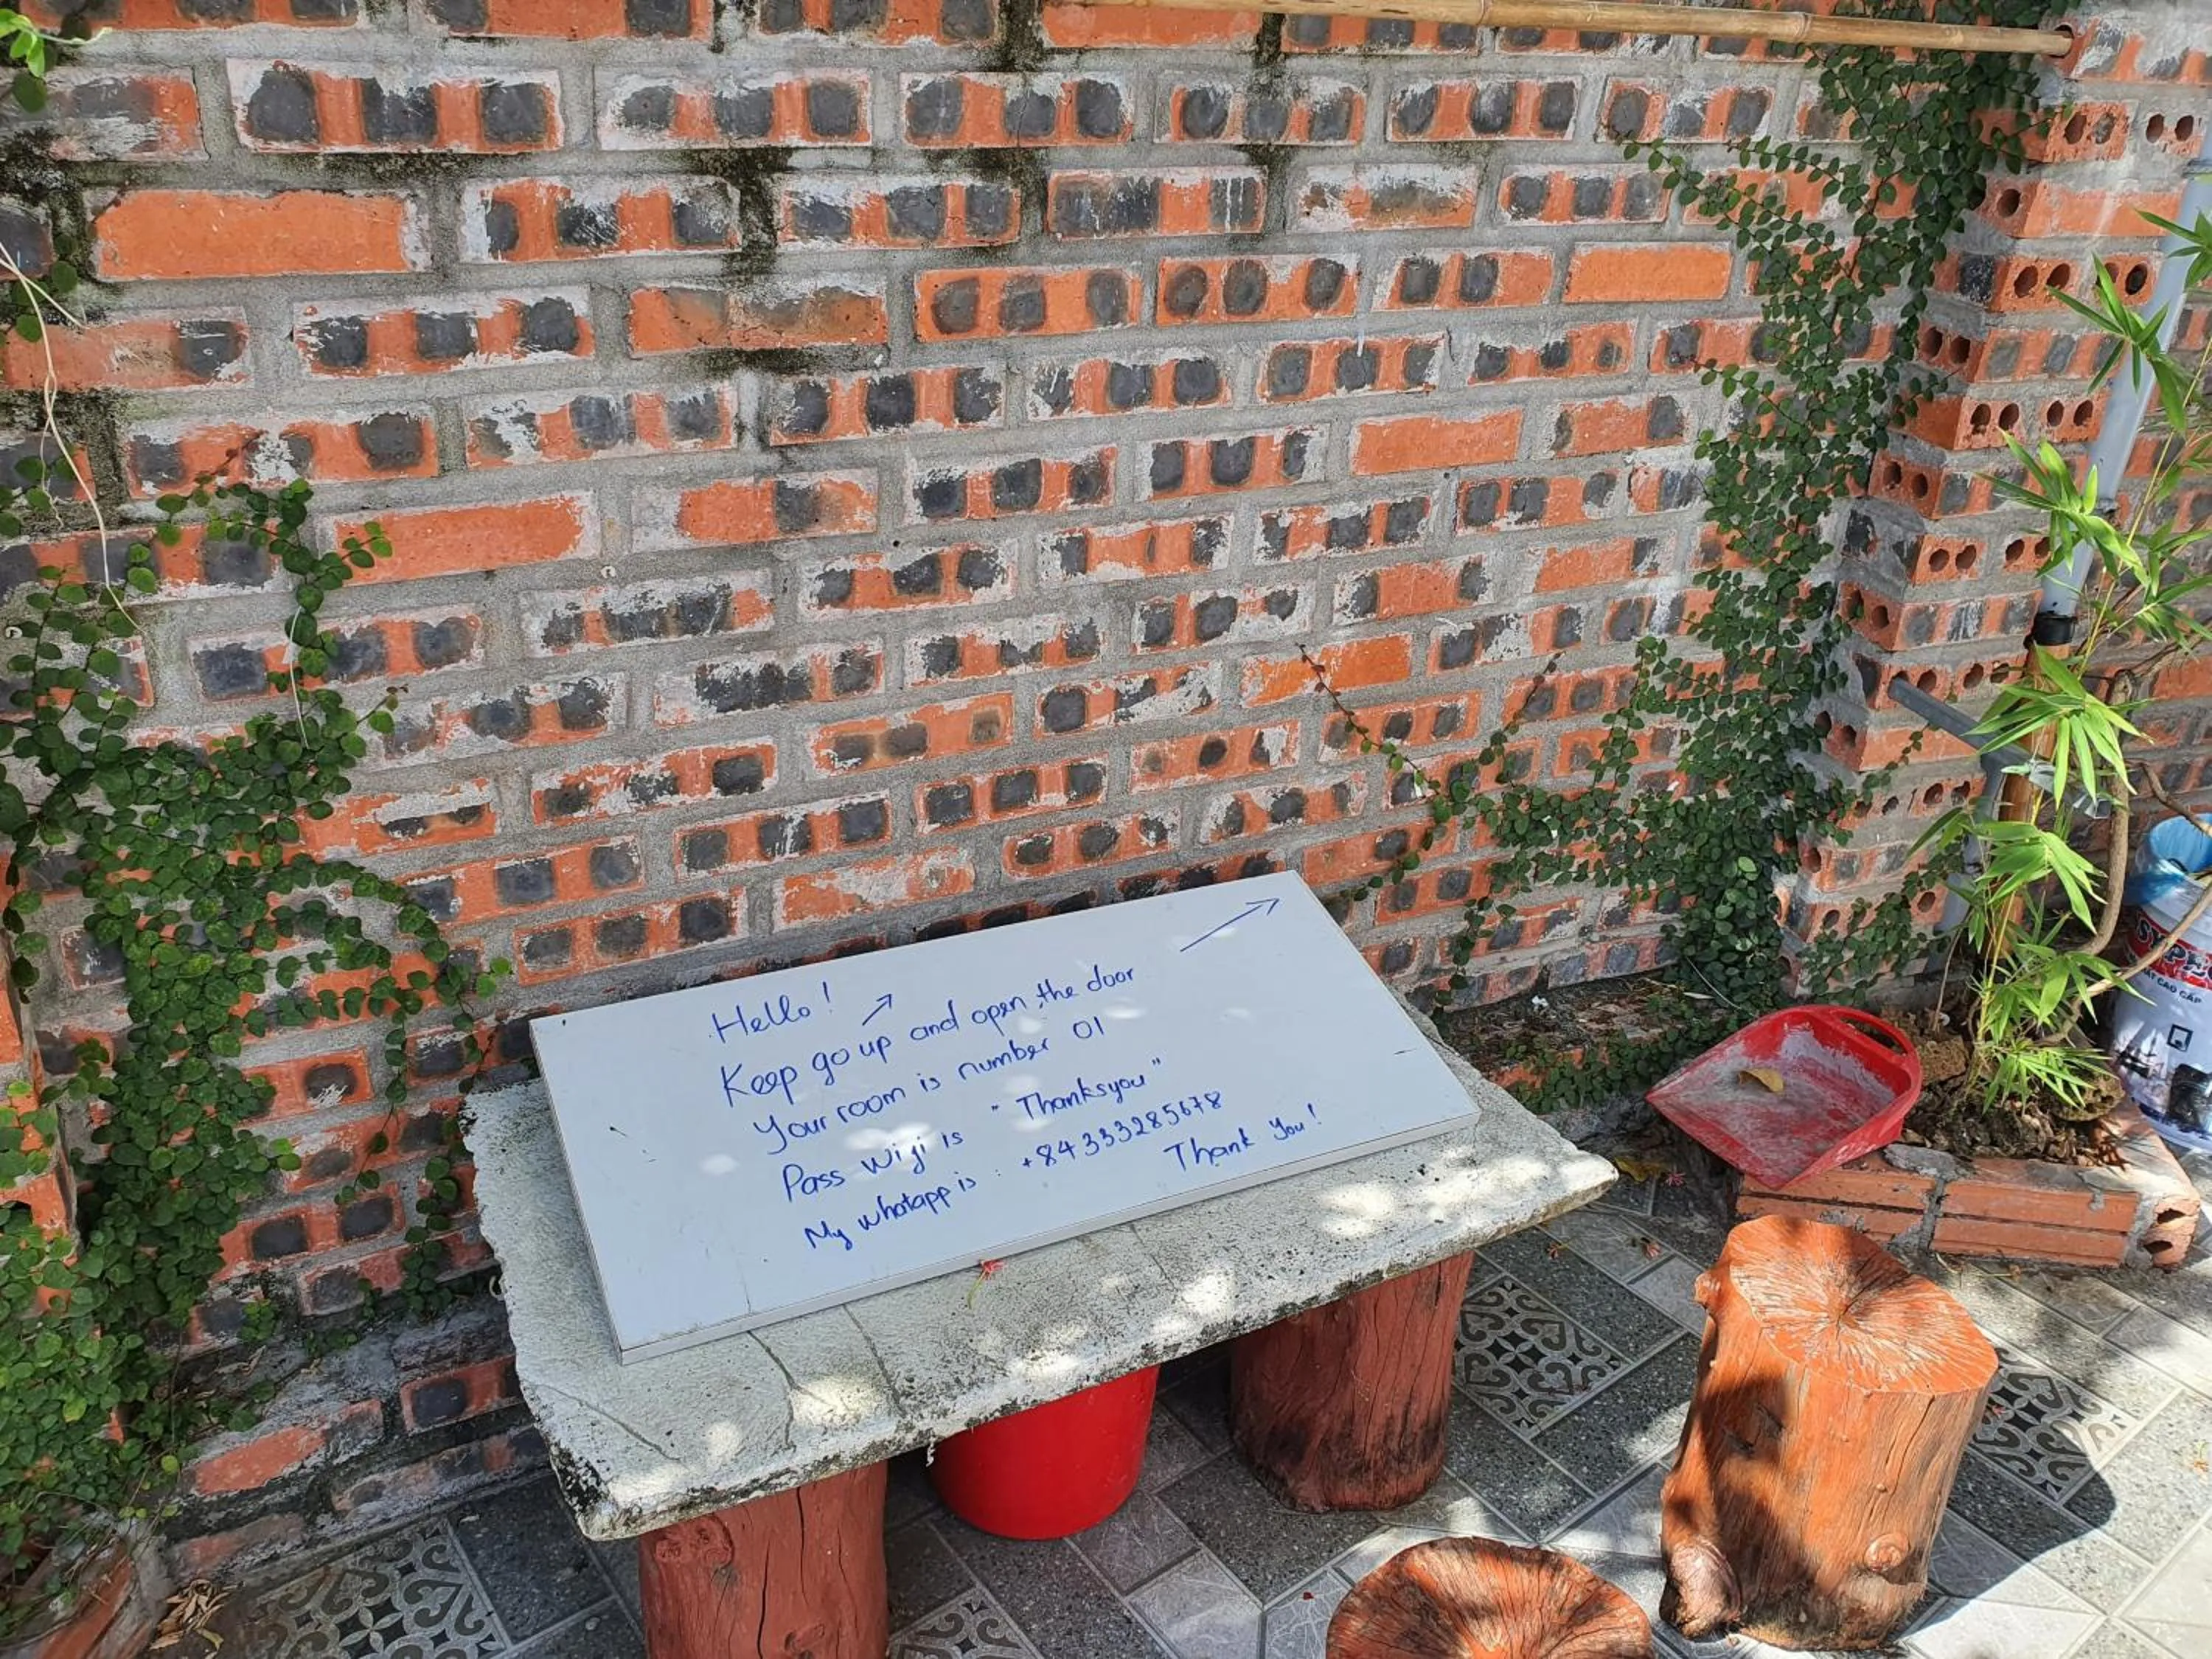 Hello!
Keep go up ↗ and open the door
Your room is number 01
Pass wifi is "Thanksyou"
My whatapp is : +84333285678
Thank you!
CAO CẤP